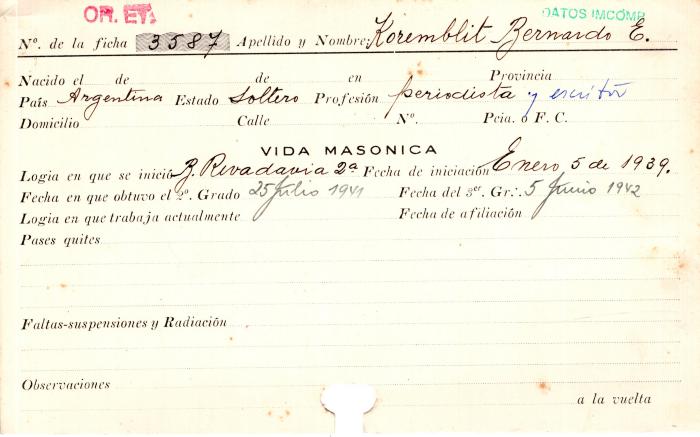 OR. ET.
DATOS IMCOMP
Nº. de la ficha 3587 Apellido y Nombre; Koremblit Bernardo E.
Nacido el de de en Provincia
País Argentina Estado Soltero Profesión periodista y escritor
Domicilio Calle Nº. Pcia. o F. C.
VIDA MASONICA
Logia en que se inició B. Rivadavia 2ª Fecha de iniciación Enero 5 de 1939.
Fecha en que obtuvo el 2º. Grado 25 Julio 1941 Fecha del 3er. Gr∴ 5 Junio 1942
Logia en que trabaja actualmente Fecha de afiliación
Pases quites
Faltas-suspensiones y Radiación
Observaciones
a la vuelta